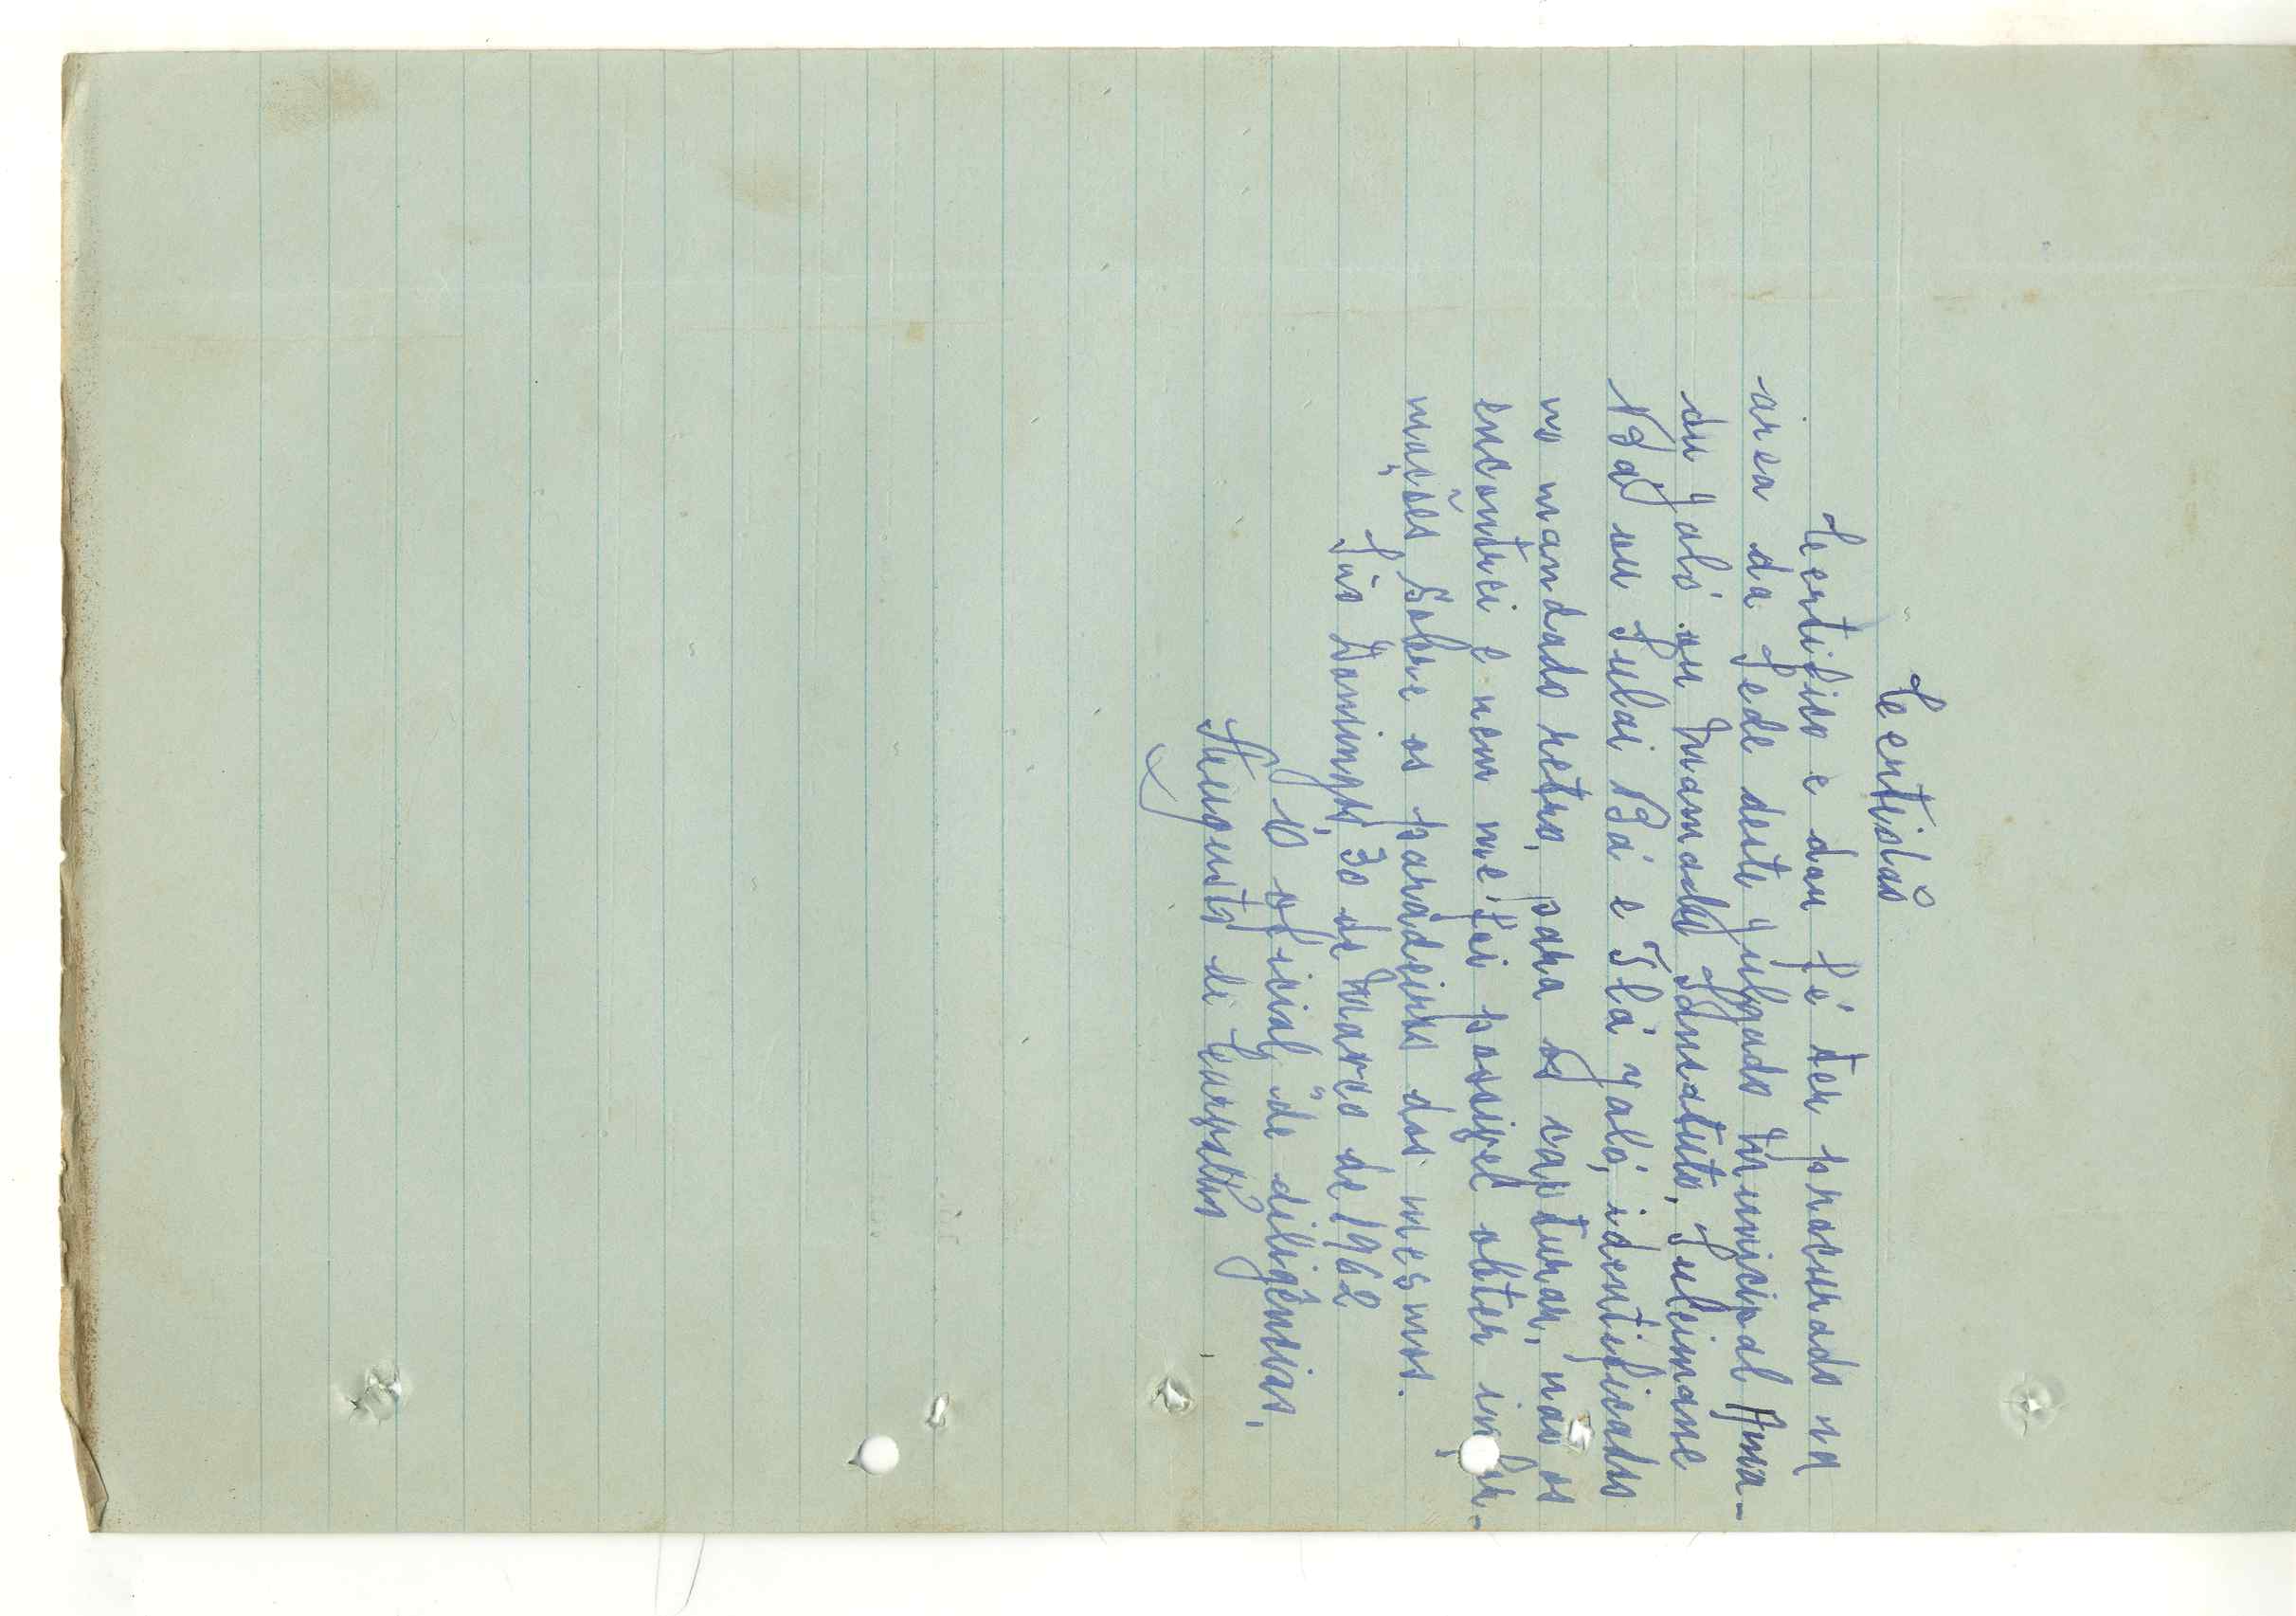 Certidão
Certifico e dou fé ter procurado na
área da Sede deste Julgado Municipal Ama-
du Jaló ou Mamadu Sanututo, Suleimane
Bá ou Sulai Bá e Ilá Jaló, identificados
no mandado retro, para os capturar, não os
encontrei e nem me foi possivel obter infor-
mações sobre os paradeiros dos mesmos.
São Domingos, 30 de Março de 1962
O oficial de diligências,
Augusto de